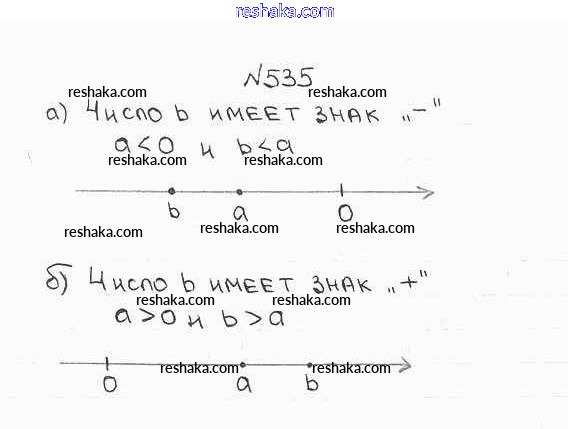 reshaka.com
№535
reshaka.com reshaka.com
а) Число b имеет знак „-"
a<0 и b<a
reshaka.com reshaka.com
b a 0
reshaka.com reshaka.com reshaka.com
б) Число b имеет знак „+"
reshaka.com reshaka.com
a>0 и b>a
reshaka.com reshaka.com
0 a b